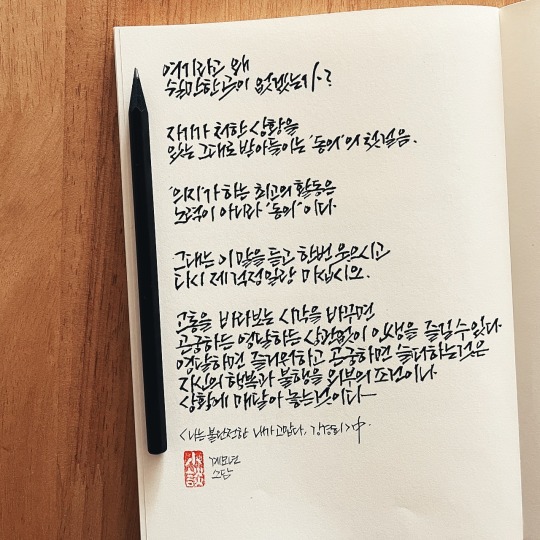 여기라고 왜
수월만한 곳이 없겠는가?
자기가 처한 상황을
있는 그대로 받아들이는 '동의'의 첫걸음.
'의지'가 하는 최고의 활동은
노력이 아니라 '동의'이다
그대는 이 말을 듣고 한번 웃으시고
다시 제 걱정일랑 마십시오.
고통을 바라보는 시각을 바꾸면
곤궁하든 영달하든 상관없이 인생을 즐길 수 있다
영달하면 즐거워하고 곤궁하면 슬퍼하는 것은
자신의 행복과 불행을 외부의 조건이나
상황에 매달아 놓는 것이다
<나는 불완전한 내가 고맙다, 강경희>中
계묘년
소담